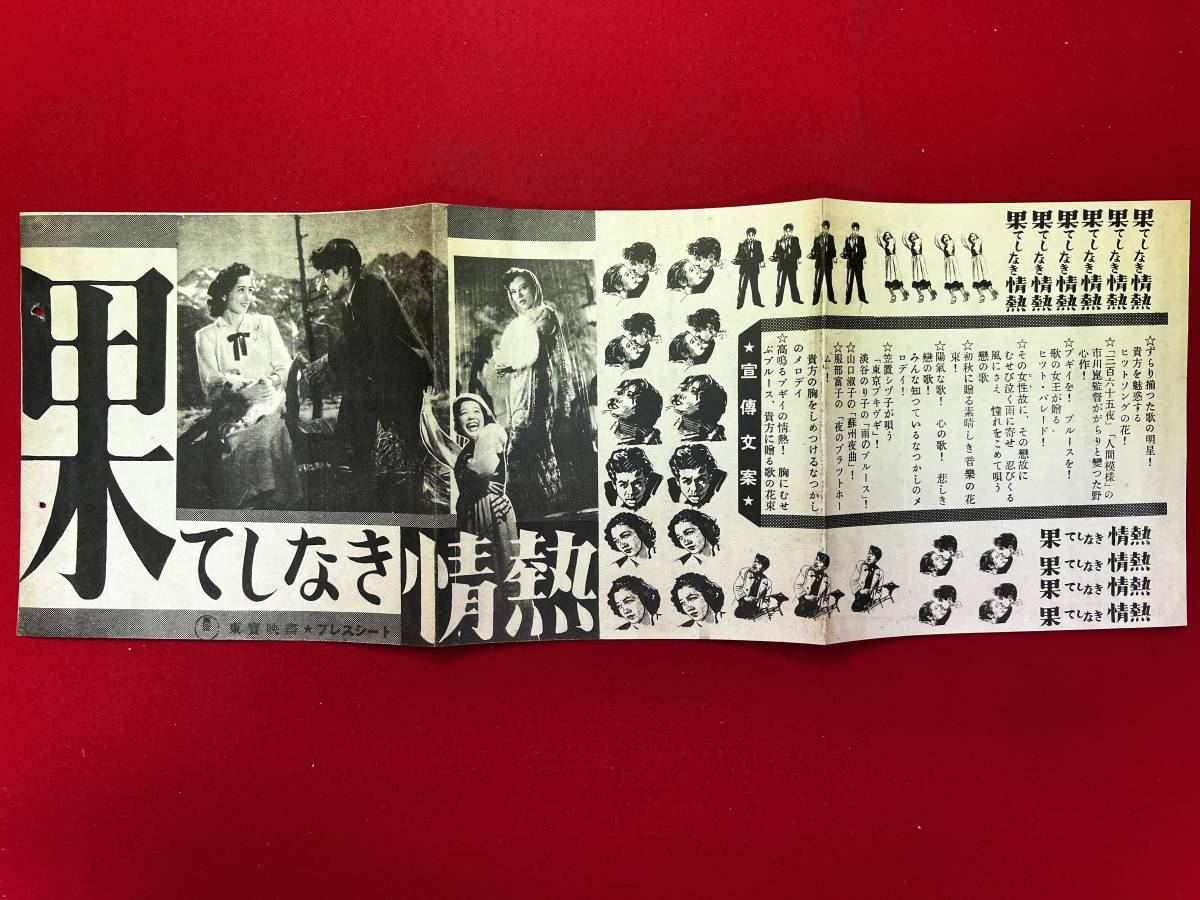 果てしなき情熱
東寳映画★プレスシート
果てしなき情熱
果てしなき情熱
果てしなき情熱
果てしなき情熱
果てしなき情熱
果てしなき情熱
☆ずらり揃つた歌の明星!
貴方を魅惑する
ヒットソングの花!
☆「三百六十五夜」「人間模様」の
市川崑監督ががらりと變つた野
心作!
☆ブギイを! ブルースを!
歌の女王が贈る
ヒット・パレード!
☆その女性故に、その戀故に
むせび泣く雨に寄せ 忍びくる
風にさえ 憧れをこめて唄う
戀の歌
☆初秋に贈る素晴しき音樂の花
束!
☆陽氣な歌! 心の歌! 悲しき
戀の歌!
みんな知つているなつかしのメ
ロデイ!
☆笠置シヅ子が唄う
「東京ブキヴギ」!
淡谷のり子の「雨のブルース」!
☆山口淑子の「蘇州夜曲」!
☆服部富子の「夜のプラツトホー
ム」!
貴方の胸をしめつけるなつかし
のメロデイ
☆高鳴るブギイの情熱! 胸にむせ
ぶブルース、貴方に贈る歌の花束
★宣傳文案★
果てしなき情熱
果てしなき情熱
果てしなき情熱
果てしなき情熱